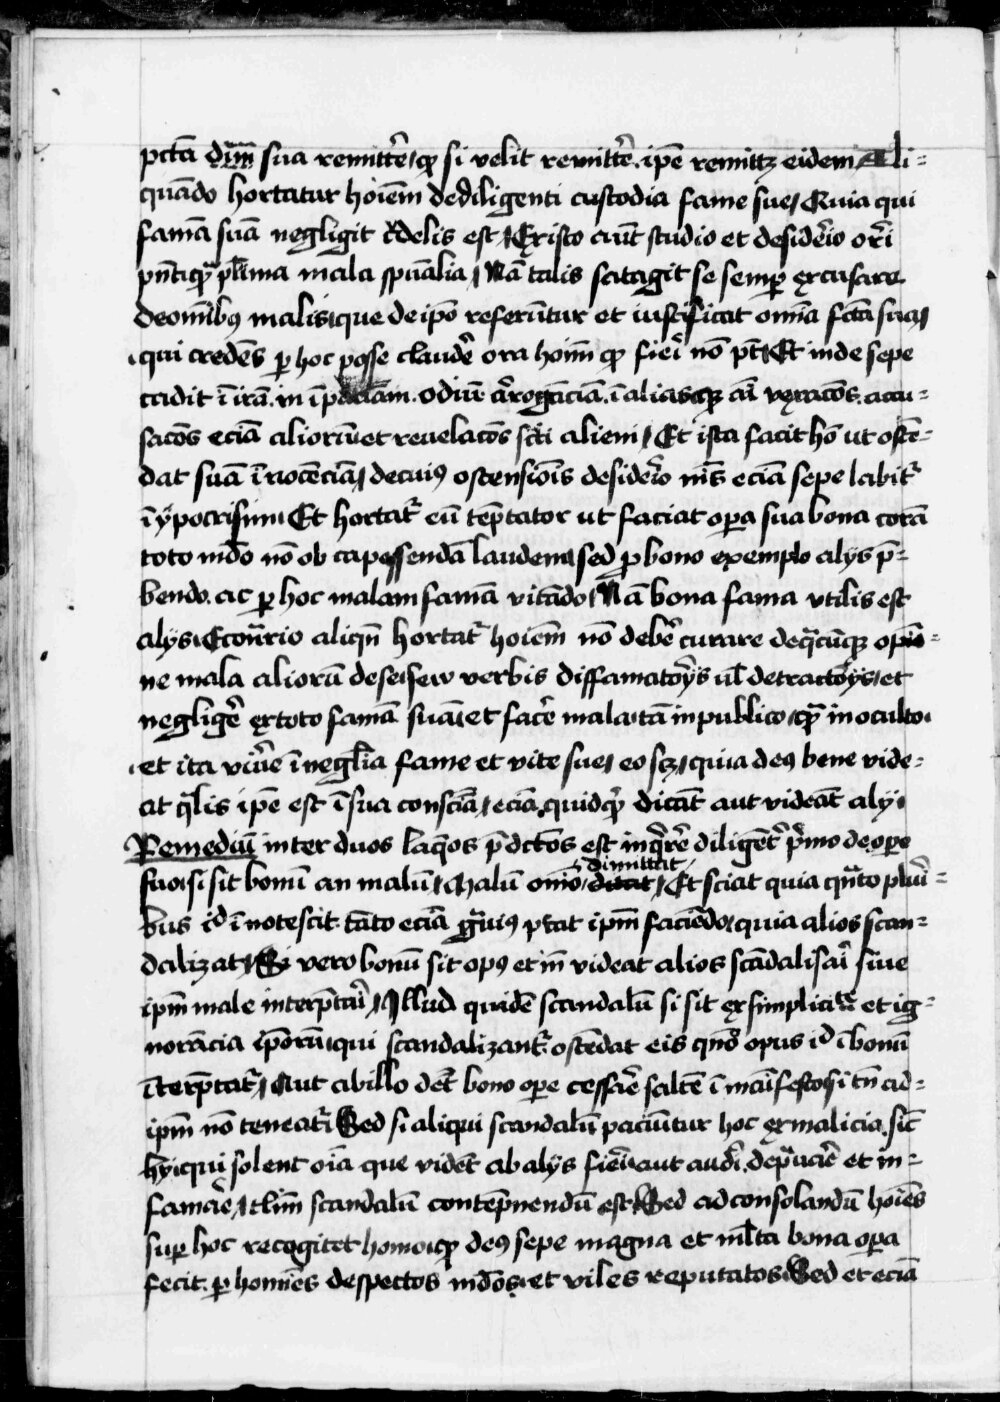 pctā dīm̄ sua remittē̓ / qꝫ si velit remittē̓ . ip̄e remittꝫ eidem Ali=
quando hortatur hoīem de diligenti custodia fame sue / Quia qui
famā suā negligit c̓delis est / Ex isto aūt studio et desideīo orī
pn̄t qꝫ plīma mala spūalia / Nā talis satagit se semꝑ excusare
de om̄ibꝯ malis que de ip̄o referūtur et iustificat om̄ia fcā sua /
qui credēs ꝑ hoc posse claudē̓ ora hoīm qꝫ fieī nō pt̄ / Et inde sepe
cadit ī irā . in īpāciam . odiū . ar̓rogāciā . ī alias qꝫ
sacōs eciā aliorū et reuelacōs alieni / Et ista facit hō ut ostē=
dat suā īnocēciā / de cuiꝯ ostensiōis desideīo nīs eciā sepe labit̓
ī ypocrisim . Et hortat̓ eū tēptator ut faciat oꝑa sua bona corā
toto mūdo nō ob capessendā laudem / sed ꝓ bono exemplo alijs p̄=
bendo . ac ꝑ hoc malam famā vitādo / Nā bona fama vtilis est
alijs . Econ̄rio aliqn̄ hortat̓ hoīem nō debē̓ curare de qᵃcūqꝫ opīo=
ne mala aliorū de se / seu verbis diffamatorijs ul̄ detractorijs / et
negligē̓ ex toto famā suā / et facē̓ mala / tā in publico / qᵃ in oculto .
et ita viuē̓ ī negl̄ia fame et vite sue / eo scꝫ / quia deꝯ bene vide=
at qᵃlis ip̄e est ī sua consciā / eciā quidqᵈ dicāt aut videāt alij .
Remediū inter duos laqᵒs p̄dc̄os est inqʳē̓ diligent̓ pʳmo de oꝑe
suo / si sit bonū an malū / Malū om̄īo dimittat / Et sciat quia qᵃto plurī=
bus id ī notescit . tāto eciā gᵃuiꝯ pctāt ip̄m faciēdo / quia alios scan=
dalizat / Si vero bonū sit opꝯ et tn̄ videat alios scādalisaī siue
ip̄m male interp̄tai̓ / Illud quidē scandalū si sit ex simplicitᵗᵉ et ig=
norācia ip̄orū / qui scandalizant̓ . ostēdat eis qn̄o opus id ī bonū
īterp̄tat̓ / Aut ab illo det̄ bono oꝑe cessaē̓ saltē ī māifesto / si tn̄ ad=
ip̄m nō teneat̓ . Sed si aliqui scandalū paciūtur hoc ex malicia . sic̄
hij qui solent oīa que vidēt ab alijs fieī / aut audī . depᵃuaē̓ et in=
famaē̓ / tl̄im scandalū contēpnendū est . Sed ad consolandū hoīēs
suꝑ hoc recogitet homo qꝫ deꝯ sepe magna et ml̄ta bona oꝑa
fecit . ꝑ homīes despectos mūdo / et viles reputatos . Sed et eciā